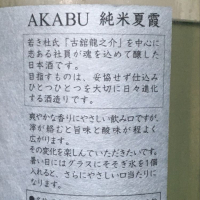 AKABU 純米夏霞
若き杜氏「古舘龍之介」を中心に
志ある社員が魂を込めて醸した
日本酒です。
目指すものは、妥協せず仕込み
ひとつひとつを大切に日々進化
する酒造りです。
爽やかな香りにやさしい飲み口ですが、
津が絡むと旨味と酸味が程よく
広がります。
その変化を楽しんでいただきたいです。
暑い日にはグラスにそそぎ氷を1個
入れると、さらにやさしい口当たりに
なります。